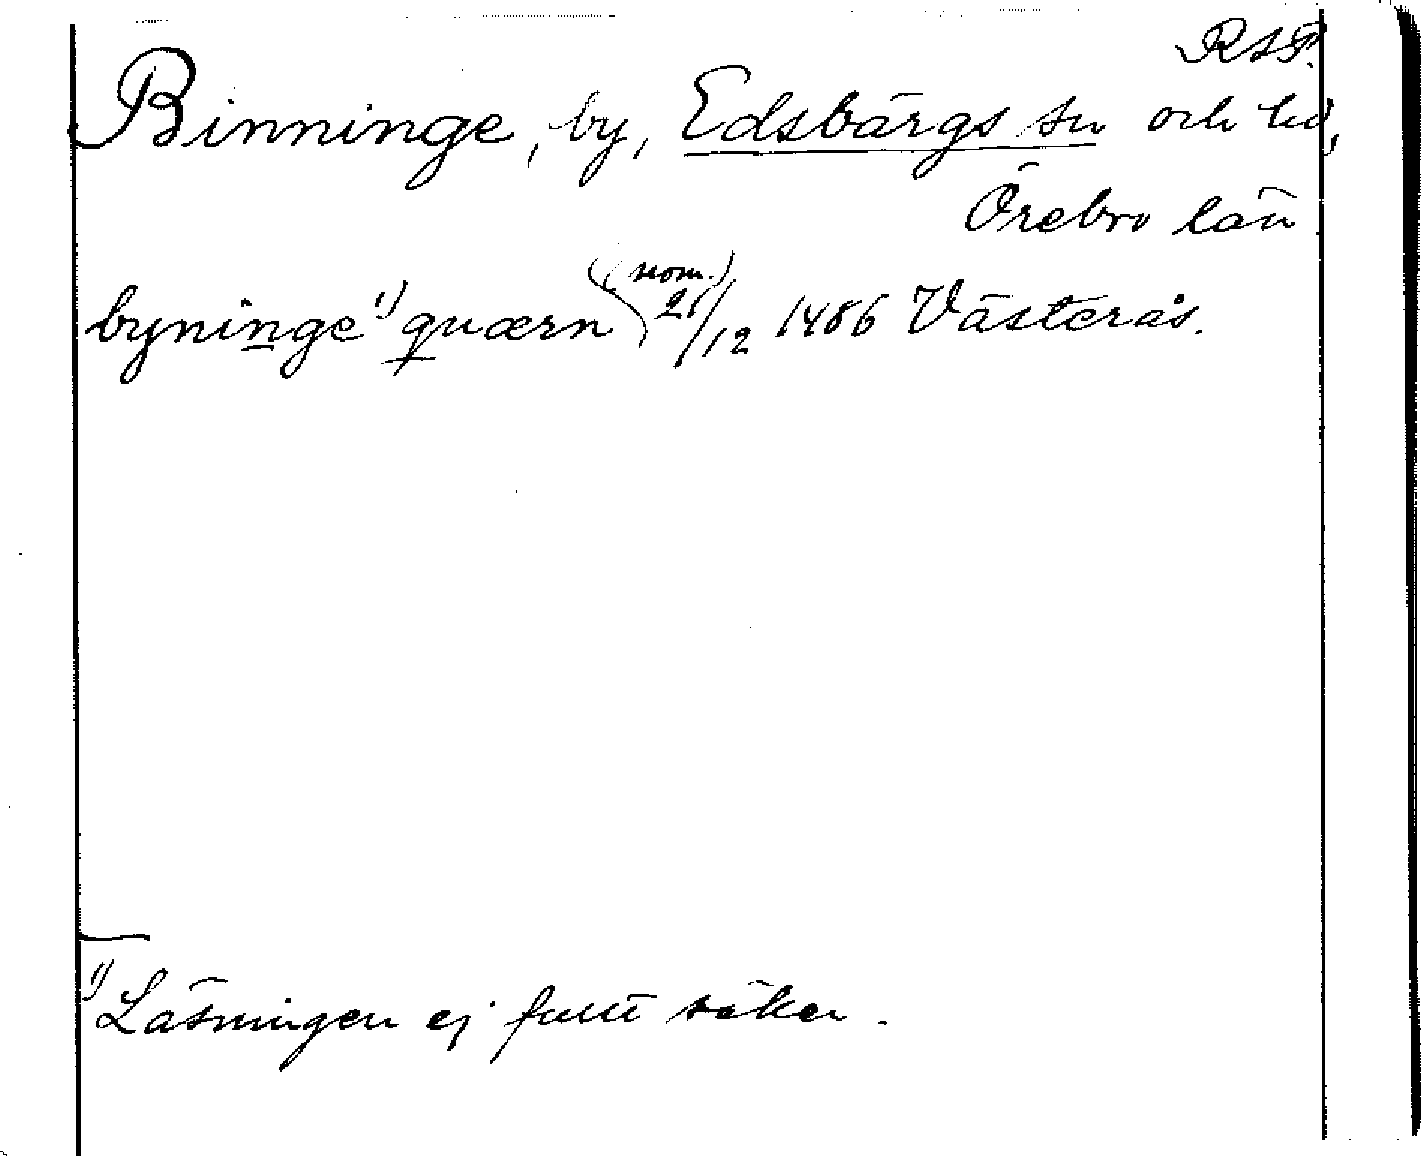 RAP.
Binninge, by, Edsbärgs sn och hd,
Örebro län
byninge ¹) quærn (nom.) 21/12 1486 Västerås.
¹) Läsningen ej fullt säker.